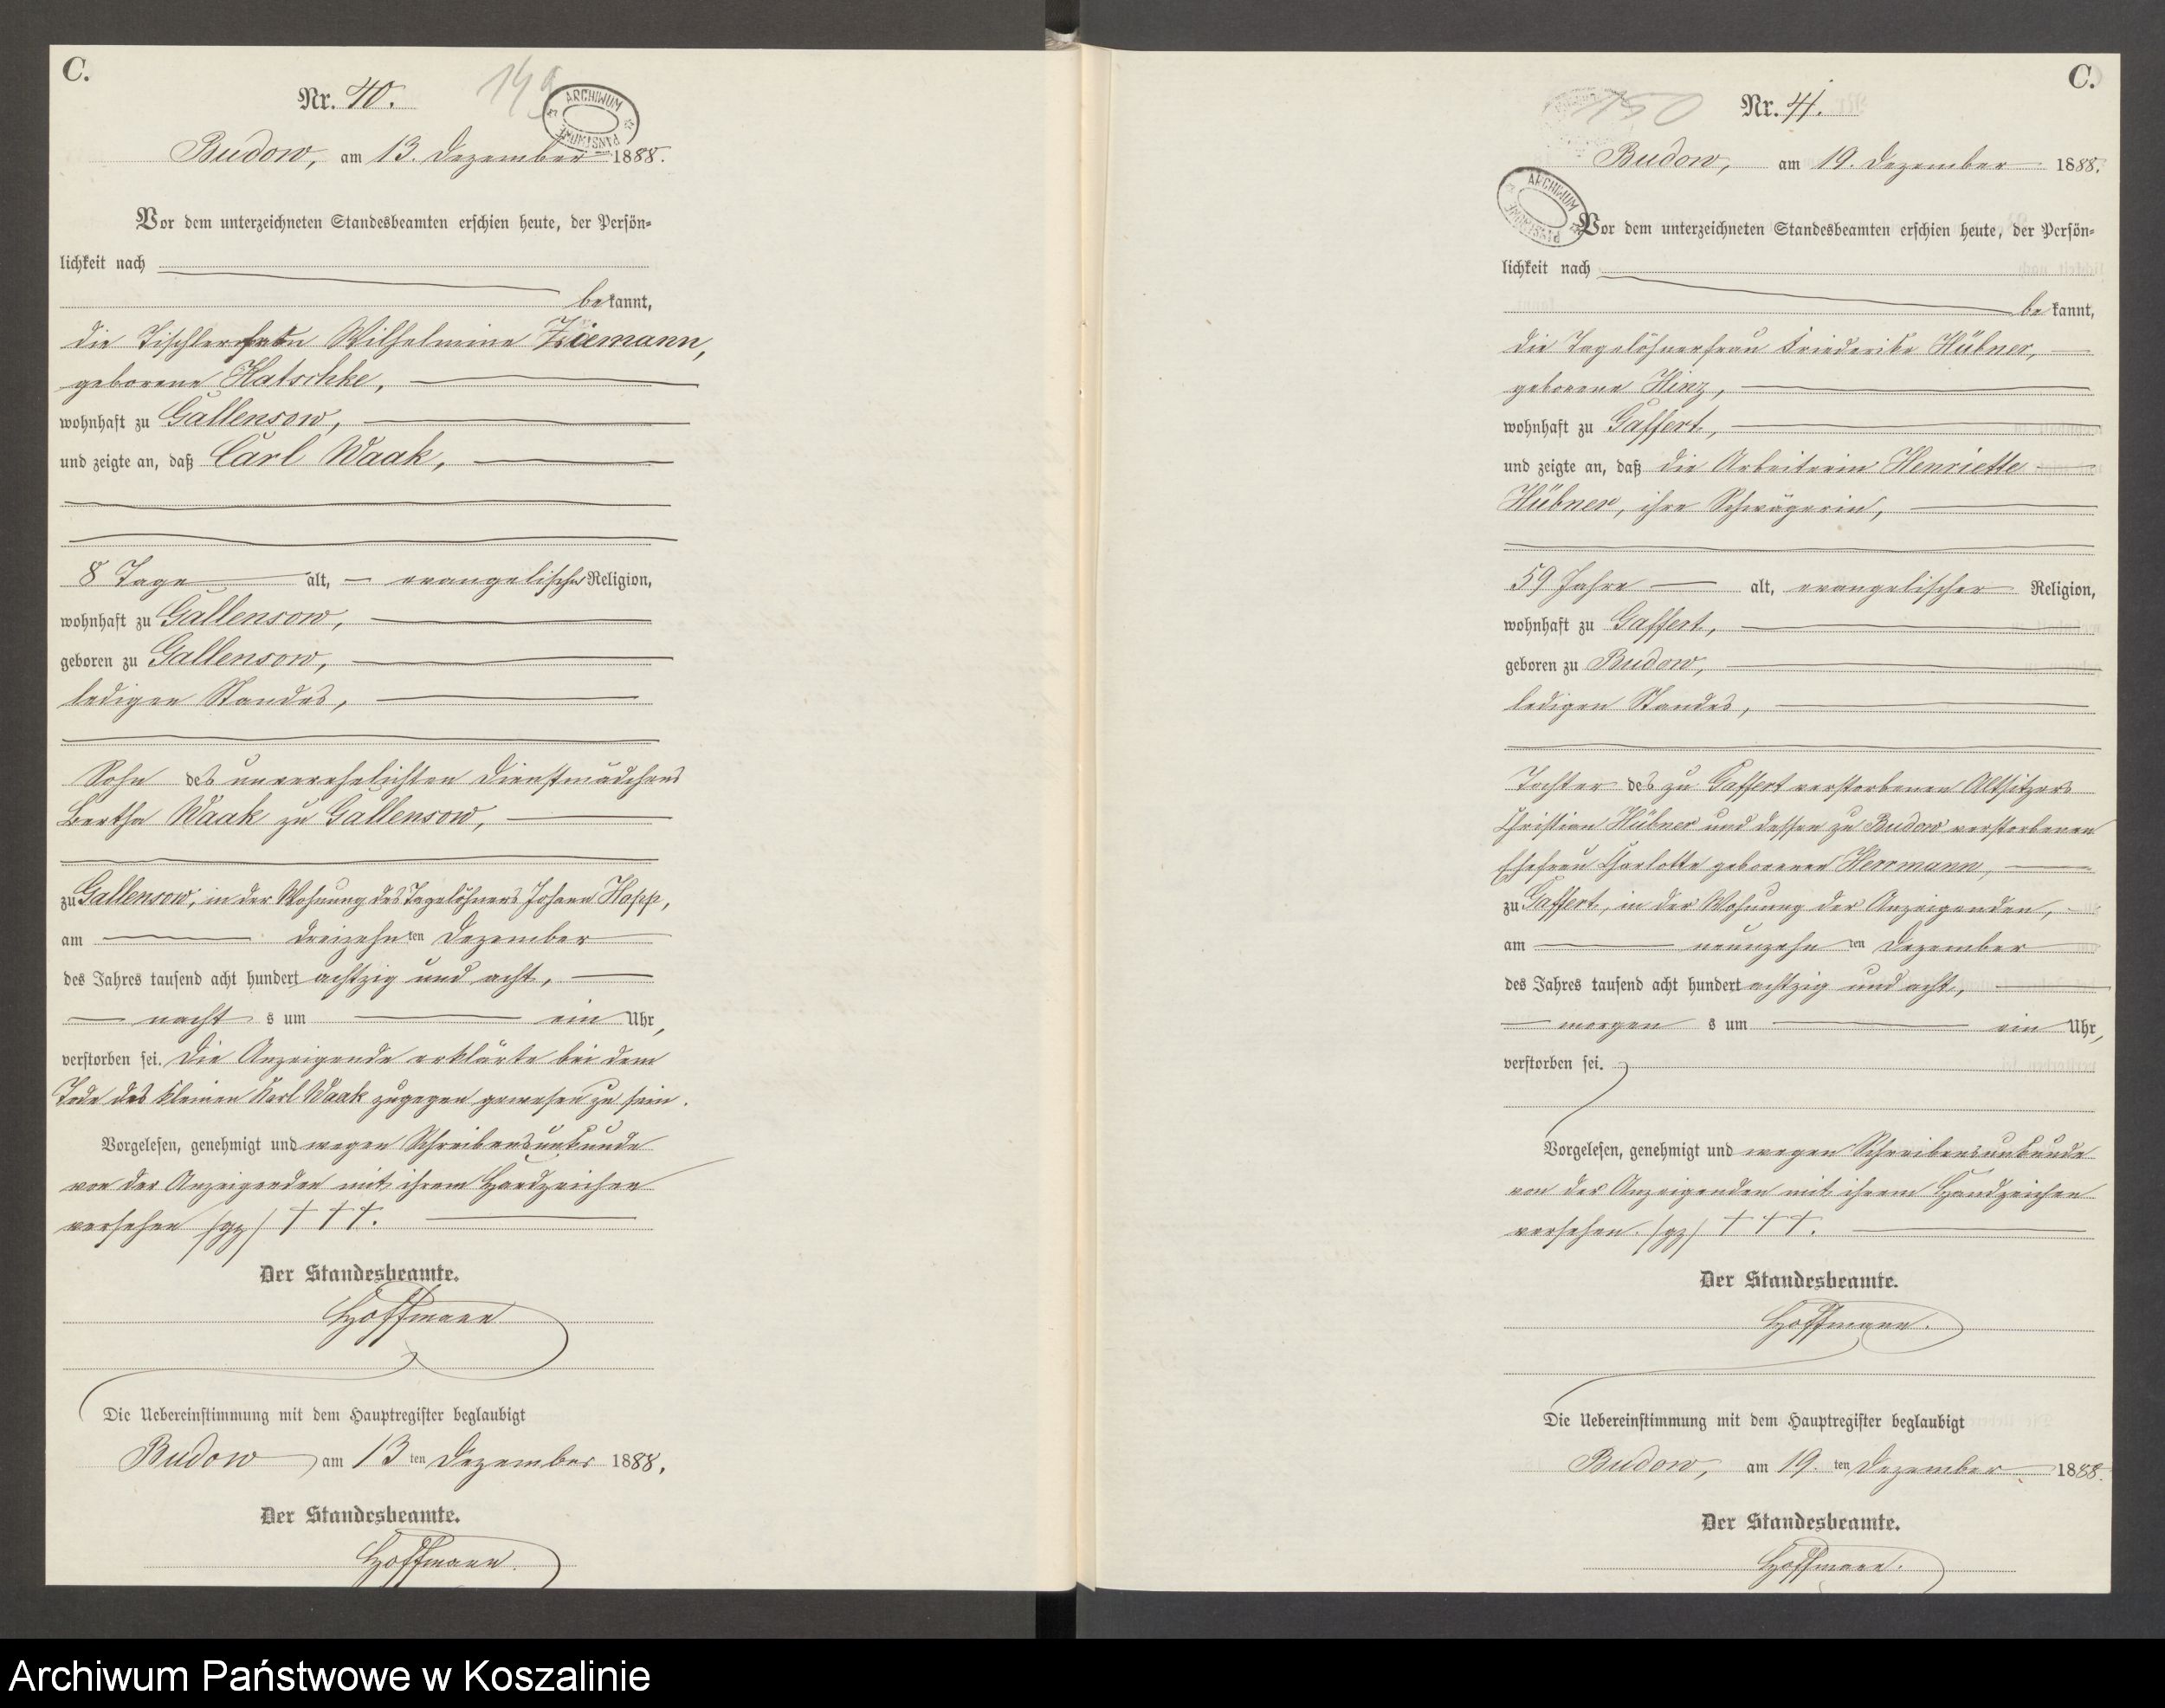 C.
Nr. 40.
149
ARCHIWUM PAŃSTWOWE
Budow, am 13. Dezember 1888.
Vor dem unterzeichneten Standesbeamten erschien heute, der Persön-
lichkeit nach
bekannt,
die Tischlerfrau Wilhelmine Ziemann,
geborene Hatschke,
wohnhaft zu Gallensow,
und zeigte an, daß Carl Waak,
8 Tage alt, evangelischer Religion,
wohnhaft zu Gallensow,
geboren zu Gallensow,
ledigen Standes,
Sohn des unverehelichten Dienstmädchens
Bertha Waak zu Gallensow,
zu Gallensow, in der Wohnung des Tagelöhners Johann Hopp,
am dreizehnten Dezember
des Jahres tausend acht hundert achtzig und acht,
nachts um ein Uhr,
verstorben sei. Die Anzeigende erklärte bei dem
Tode des kleinen Karl Waak zugegen gewesen zu sein.
Vorgelesen, genehmigt und wegen Schreibensunkunde
von der Anzeigenden mit ihrem Handzeichen
versehen /gz/ † † †.
Der Standesbeamte.
Hoffmann
Die Uebereinstimmung mit dem Hauptregister beglaubigt
Budow, am 13ten Dezember 1888.
Der Standesbeamte.
Hoffmann.
C.
150
Nr. 41.
Budow, am 19. Dezember 1888.
ARCHIWUM PAŃSTWOWE
Vor dem unterzeichneten Standesbeamten erschien heute, der Persön-
lichkeit nach
bekannt,
die Tagelöhnerfrau Friederike Hübner,
geborene Hinz,
wohnhaft zu Gaffert,
und zeigte an, daß die Arbeiterin Henriette
Hübner, ihre Schwägerin,
59 Jahre alt, evangelischer Religion,
wohnhaft zu Gaffert,
geboren zu Budow,
ledigen Standes,
Tochter des zu Gaffert verstorbenen Altsitzers
Christian Hübner und dessen zu Budow verstorbenen
Ehefrau Charlotte geborenen Herrmann,
zu Gaffert, in der Wohnung der Anzeigenden,
am neunzehnten Dezember
des Jahres tausend acht hundert achtzig und acht,
morgens um ein Uhr,
verstorben sei.
Vorgelesen, genehmigt und wegen Schreibensunkunde
von der Anzeigenden mit ihrem Handzeichen
versehen. /gz/ † † †.
Der Standesbeamte.
Hoffmann.
Die Uebereinstimmung mit dem Hauptregister beglaubigt
Budow, am 19.ten Dezember 1888.
Der Standesbeamte.
Hoffmann.
Archiwum Państwowe w Koszalinie